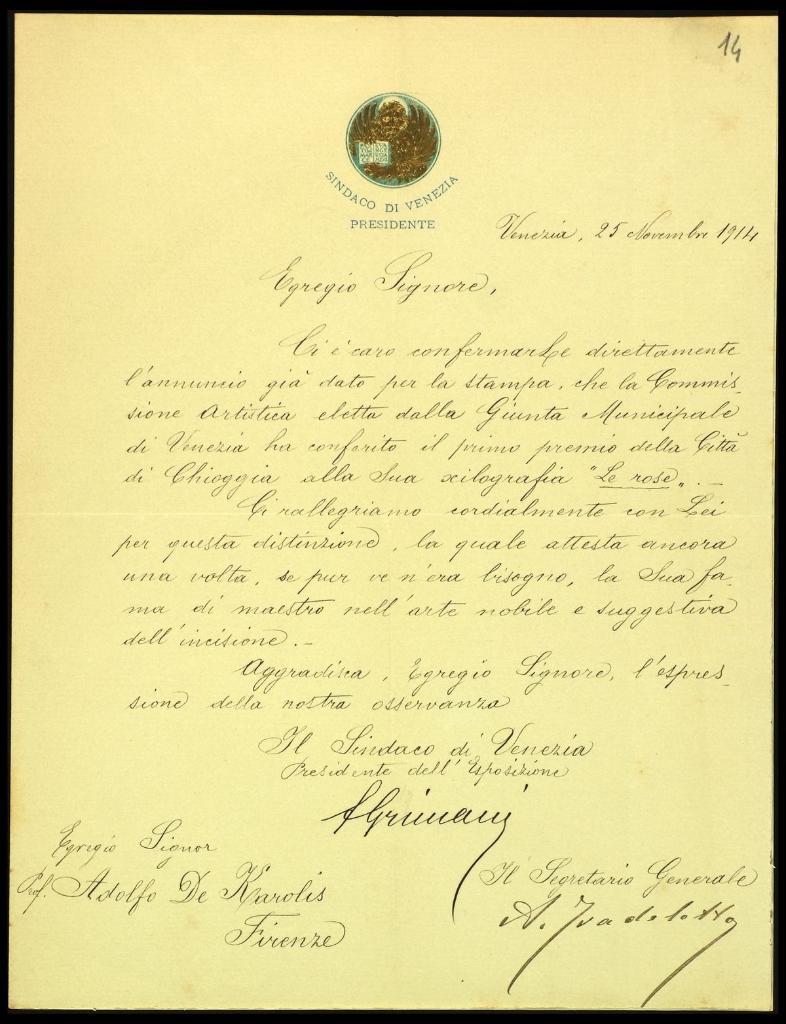 14
SINDACO DI VENEZIA
PRESIDENTE
Venezia, 25 Novembre 1914
Egregio Signore,
Ci è caro confermarLe direttamente
l'annuncio già dato per la stampa, che la Commis-
sione Artistica eletta dalla Giunta Municipale
di Venezia ha conferito il primo premio della Città
di Chioggia alla Sua xilografia "Le rose„. —
Ci rallegriamo cordialmente con Lei
per questa distinzione, la quale attesta ancora
una volta, se pur ve n'era bisogno, la Sua fa-
ma di maestro nell'arte nobile e suggestiva
dell'incisione. —
Aggradisca, Egregio Signore, l'espres-
sione della nostra osservanza
Il Sindaco di Venezia
Presidente dell'Esposizione
FGrimani
Egregio Signor
Prof. Adolfo De Karolis
Firenze
Il Segretario Generale
A.